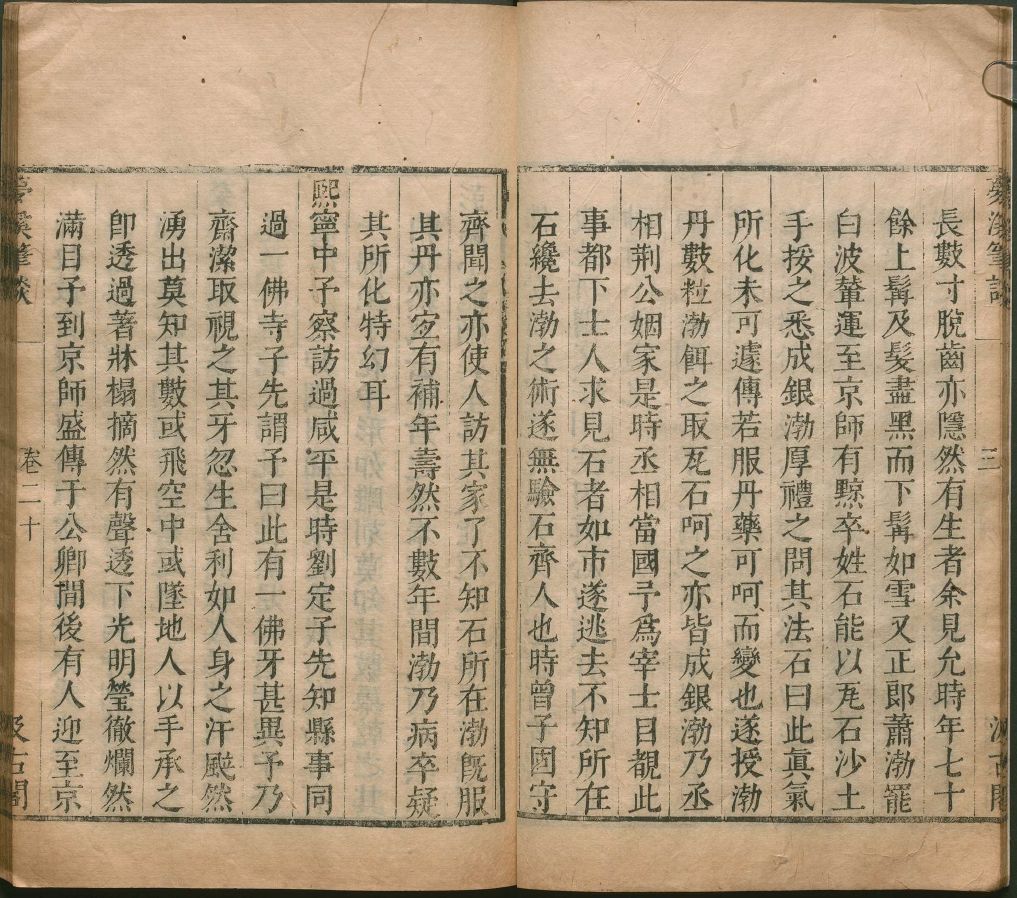 夢溪筆談
三
汲古閣
長數寸脫齒亦隱然有生者余見允時年七十
餘上髯及髮盡黑而下髯如雪又正郎蕭渤罷
白波輦運至京師有黥卒姓石能以瓦石沙土
手挼之悉成銀渤厚禮之問其法石曰此真氣
所化未可遽傳若服丹藥可呵而變也遂授渤
丹數粒渤餌之取瓦石呵之亦皆成銀渤乃丞
相荆公姻家是時丞相當國予爲宰士目覩此
事都下士人求見石者如市遂逃去不知所在
石纔去渤之術遂無驗石齊人也時曾子固守
齊聞之亦使人訪其家了不知石所在渤旣服
其丹亦宜有補年壽然不數年間渤乃病卒疑
其所化特幻耳
熙寧中予察訪過咸平是時劉定子先知縣事同
過一佛寺子先謂予曰此有一佛牙甚異予乃
齋潔取視之其牙忽生舍利如人身之汗颰然
湧出莫知其數或飛空中或墜地人以手承之
卽透過著牀榻摘然有聲透下光明瑩徹爛然
滿目予到京師盛傳于公卿間後有人迎至京
夢溪筆談
卷二十
汲古閣